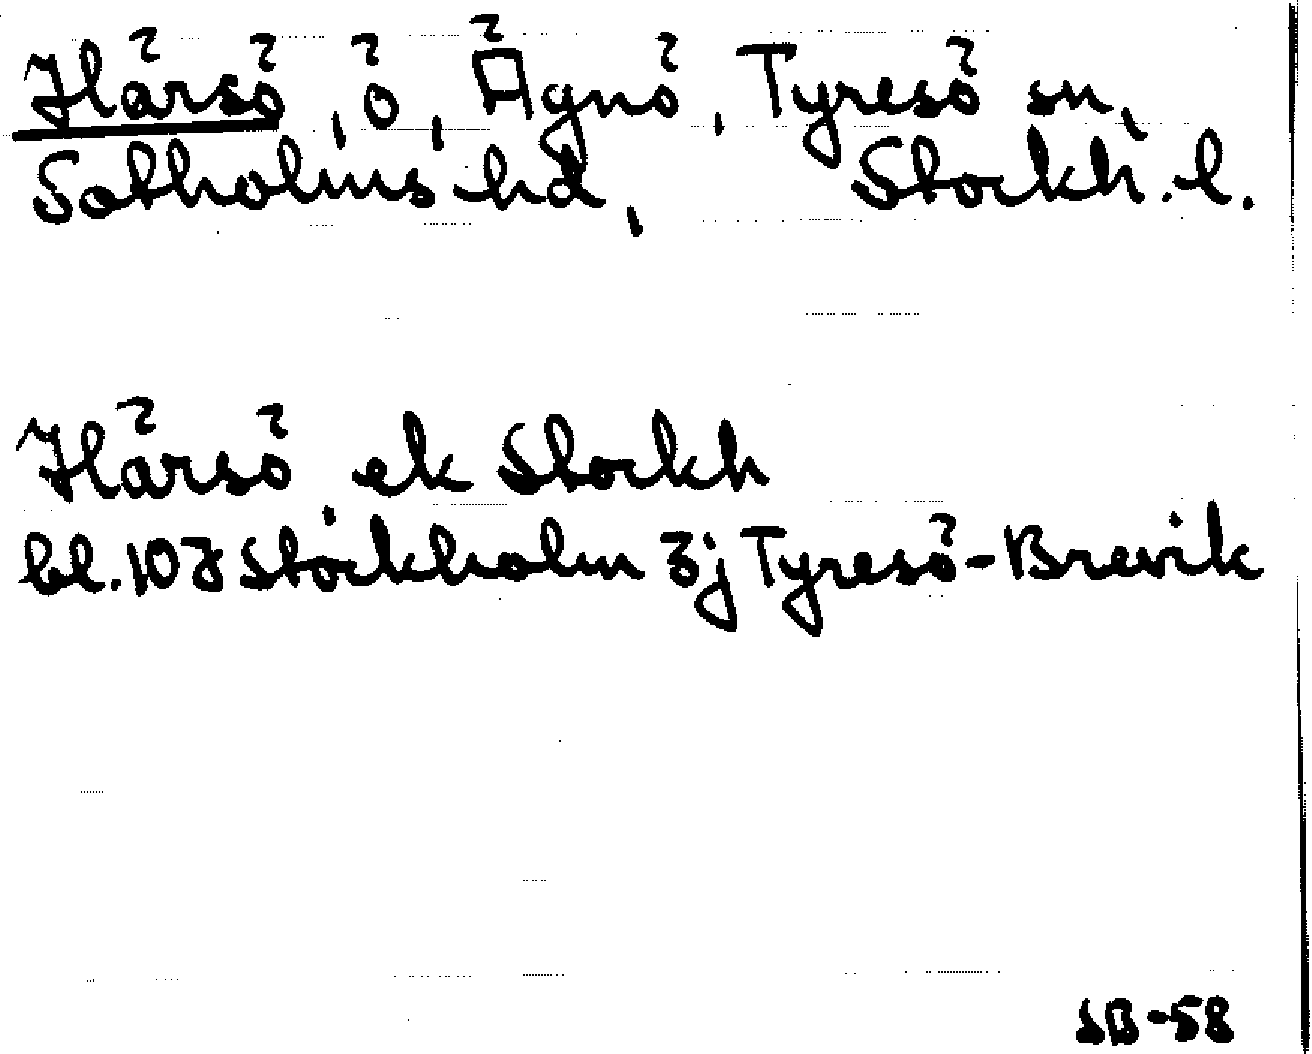 Härsö, ö, Ägnö, Tyresö sn,
Sotholms hd, Stockh. l.
Härsö ek Stockh
bl. 107 Stockholm 3j Tyresö-Brevik
SB-58